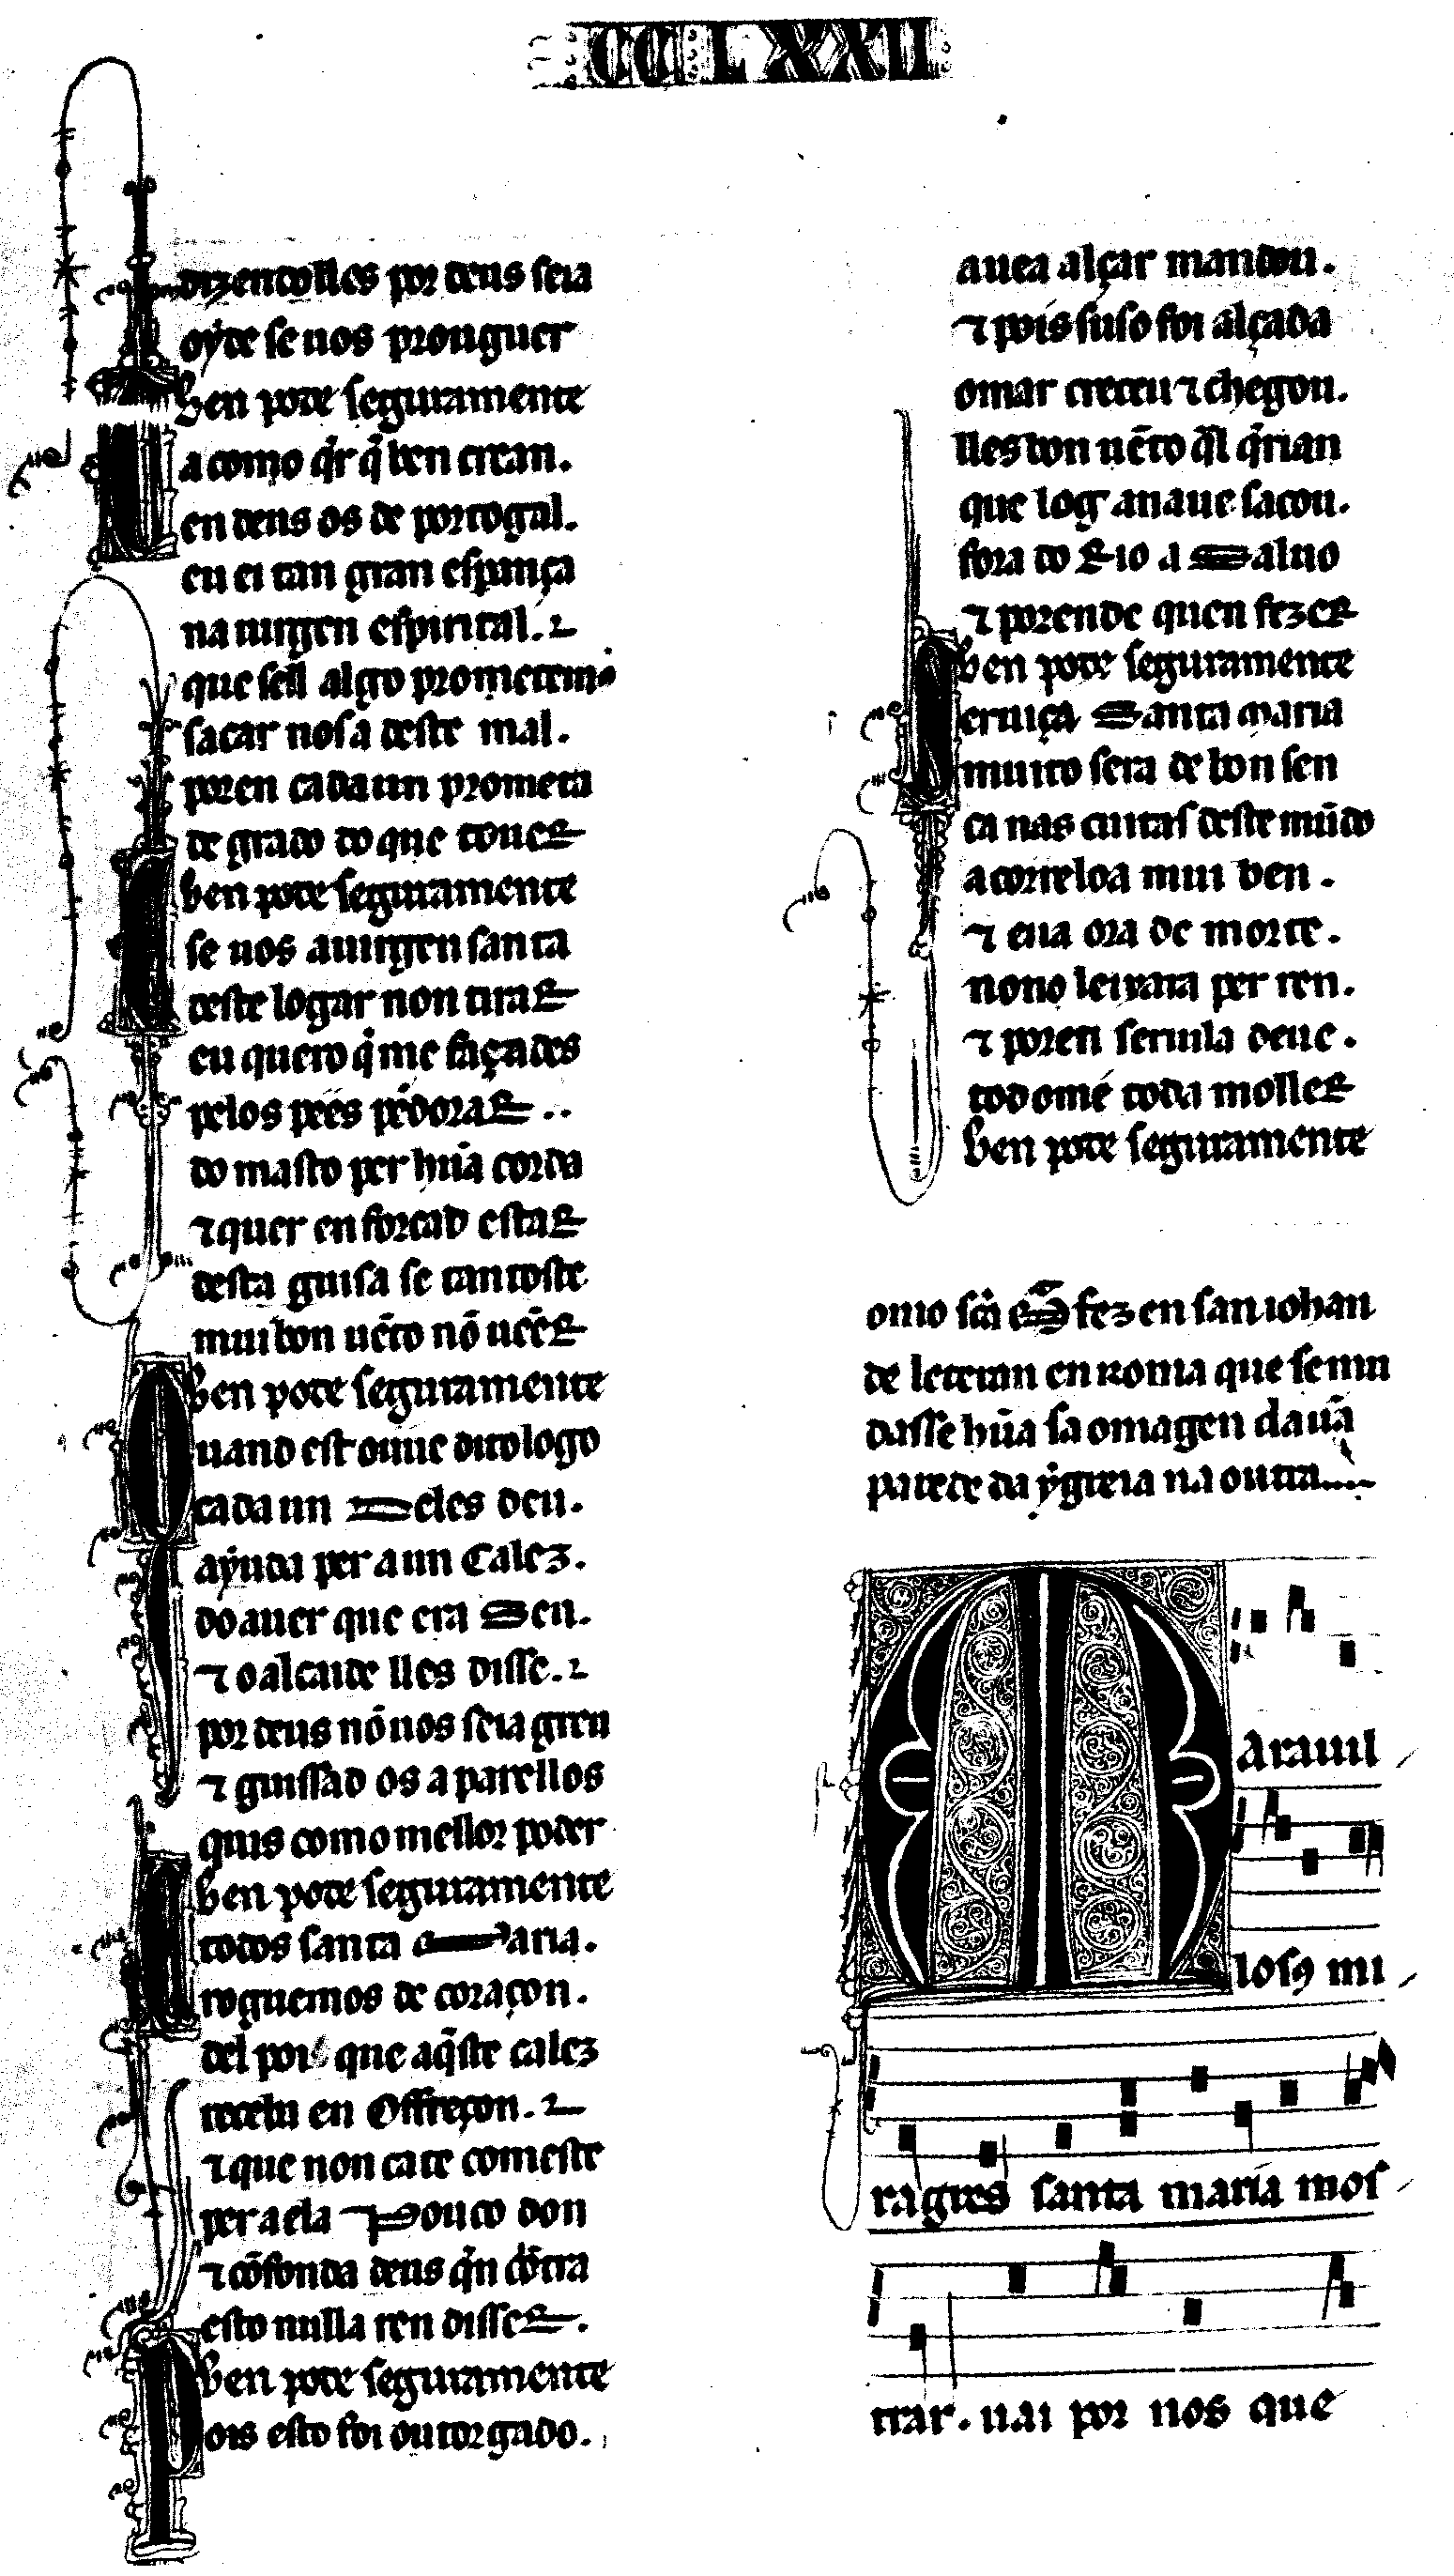 CCLXXII
dizendolles por deus seia
oyde se uos prouguer
Ben pode seguramente
a como qr q̇ ben crean.
en deus os de portogal.
eu ei tan gran esp̃nça
na uirgen espirital. ⁊
que sell algo prometem
sacar nosa deste mal.
poren cada un prometa
de grado do que touer
Ben pode seguramente
se nos a uirgen santa
deste logar non tirar
eu quero q̇ me façades
pelos pees pẽdorar..
do masto per hũa corda
⁊ quer enforcad estar
desta guisa se tan toste
mui bon uẽto nõ uẽer
Ben pode seguramente
Quand est ouue dito logo
cada un deles deu.
ayuda pera un Calez.
do auer que era Sen.
⁊ o alcaide lles disse. ⁊
por deus nõ uos seia greu
⁊ guissad os aparellos
quis como mellor poder
Ben pode seguramente
todos santa Maria.
roguemos de coraçon.
del poi que aq̃ste calez
recebu en Offreçon. ⁊
⁊ que non cate com este
pera ela Pouco don
⁊ cõfonda deus q̇n cõtra
esto nulla ren disser.
Ben pode seguramente
Pois esto foi outorgado.
a uea alçar mandou.
⁊ pois suso foi alçada
o mar creceu ⁊ chegou.
lles bon uẽto q̃l q̇rian
que log a naue sacou.
fora do Rio a Saluo
⁊ porende quen fezer
Ben pode seguramente
eruiça Santa Maria
muito sera de bon sen
ca nas cuitas deste mũdo
acorreloa mui ben.
⁊ ena ora de morte.
nono leixara per ren.
⁊ poren seruila deue.
tod omẽ toda moller
Ben pode seguramente
omo sc̃a M fez en san iohan
de leteran en Roma que se mu
dasse hũa sa omagen da uã
parede da ygreia na outra....
Marauil
losꝯ mi
ragres santa maria mos
trar. uai por nos que